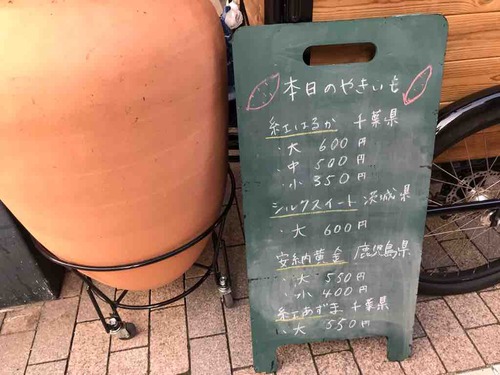 本日のやきいも
紅はるか 千葉県
・大 600円
・中 500円
・小 350円
シルクスイート 茨城県
・大 600円
安納黄金 鹿児島県
・大 550円
・小 400円
紅あずま 千葉県
・大 550円